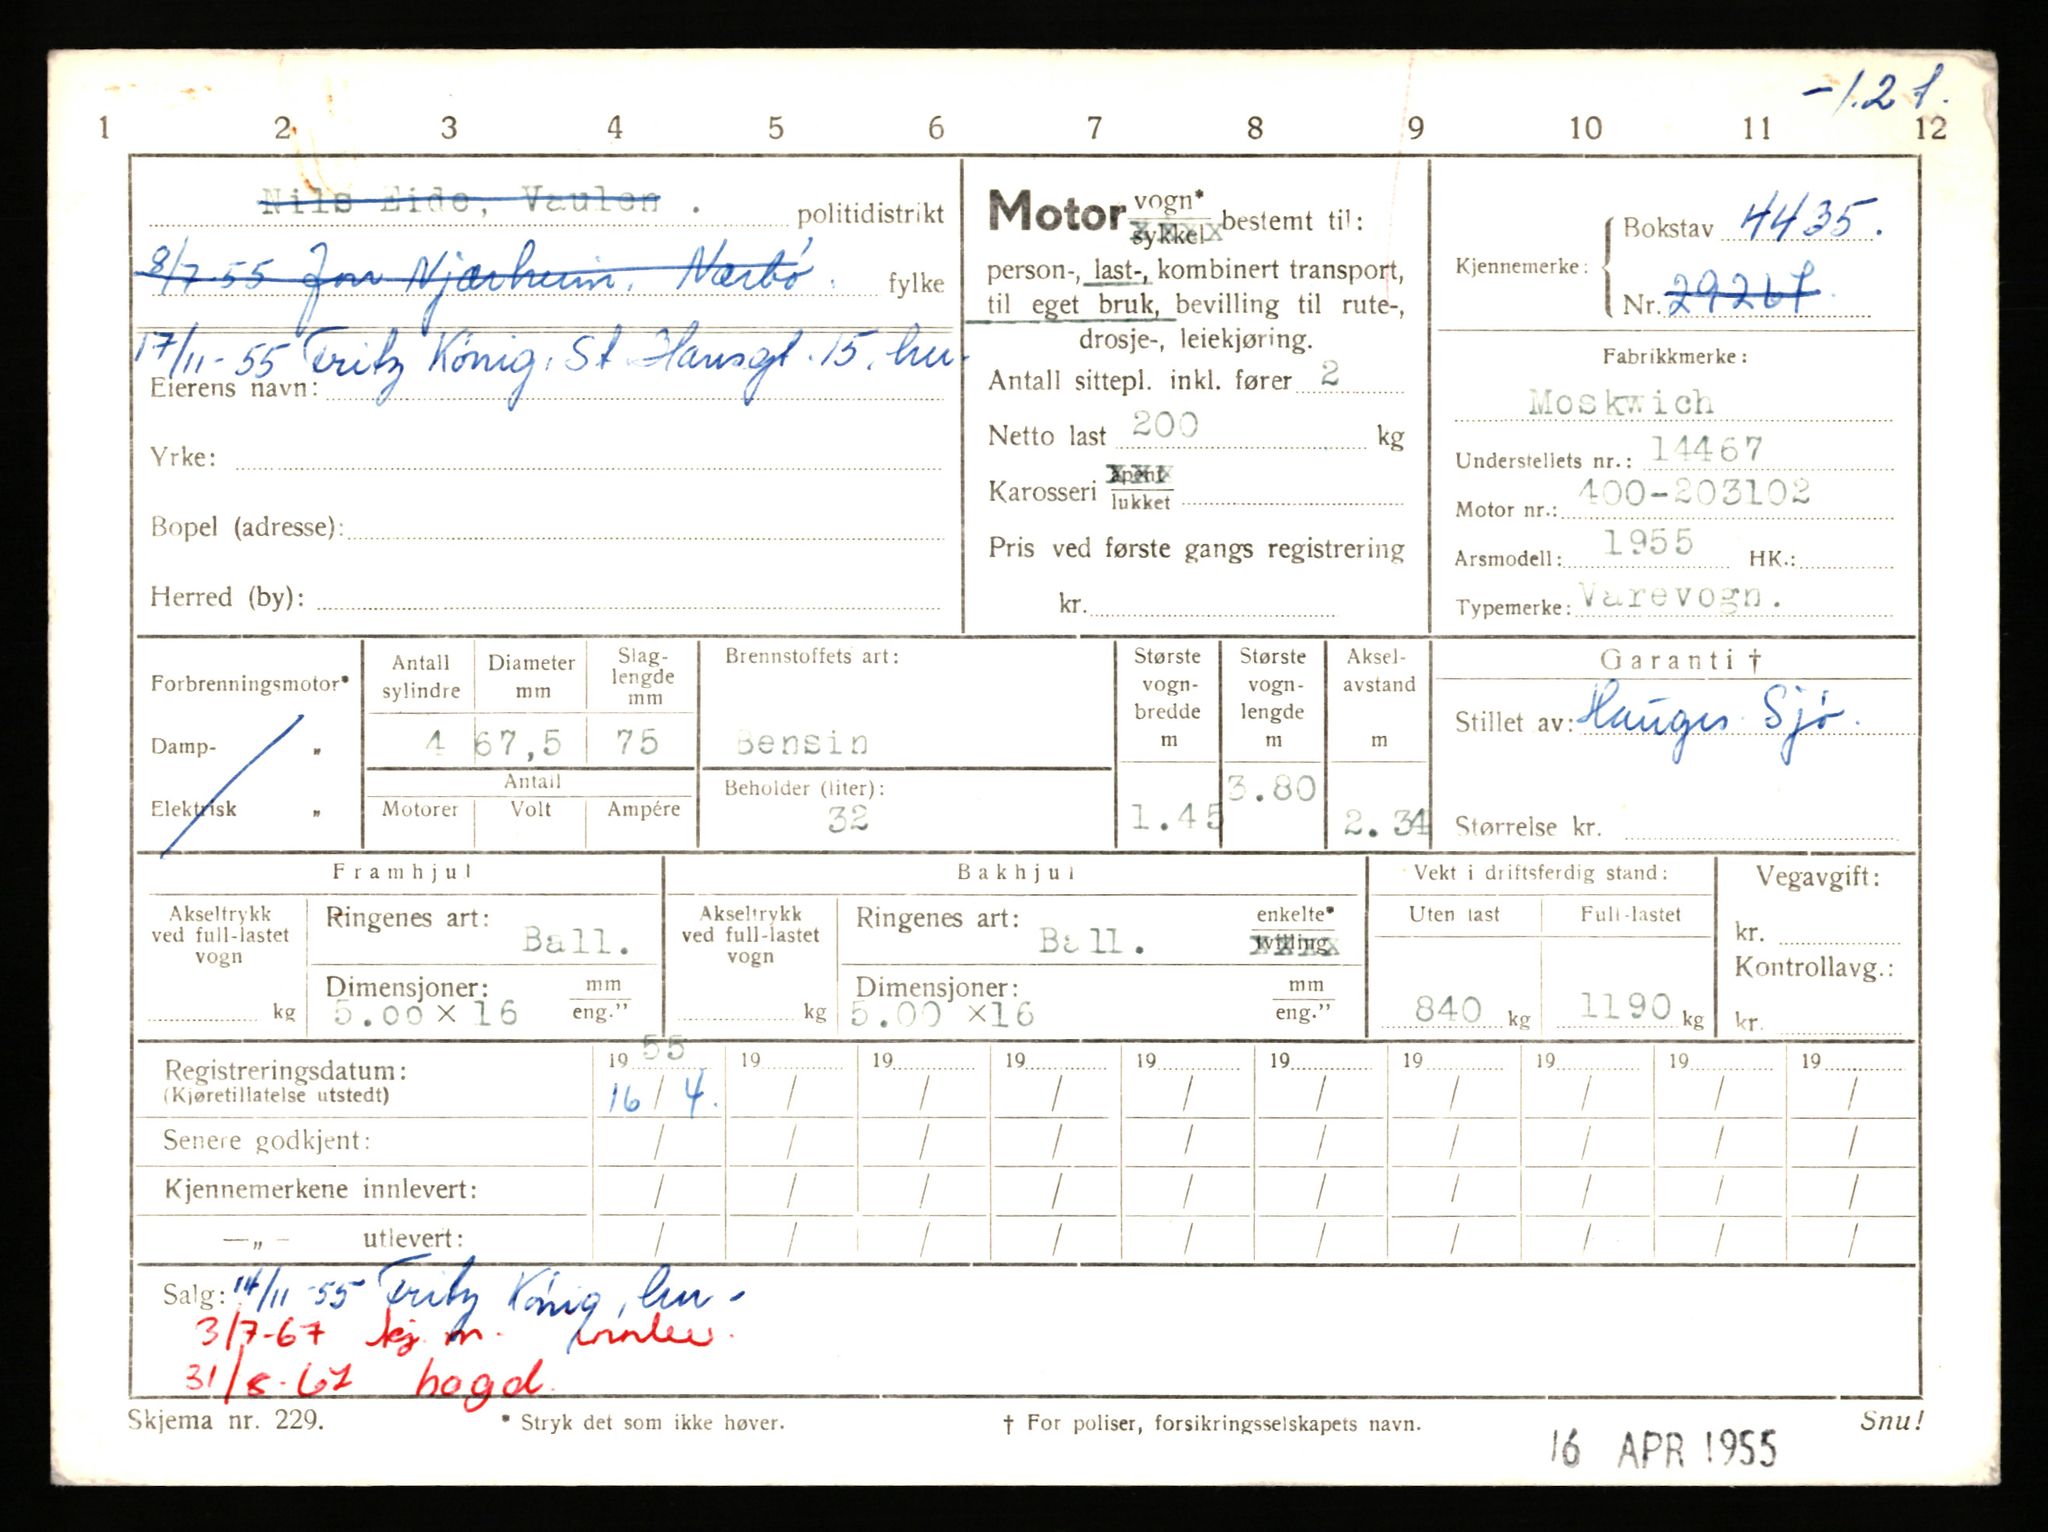 -1.21.
1 2 3 4 5 6 7 8 9 10 11 12
Nils Eide, Vaulen . politidistrikt
8/7-55 Jon Njærheim, Nærbö. fylke
17/11-55 Fritz König, St. Hansgt. 15, hu-
Eierens navn:
Yrke:
Bopel (adresse):
Herred (by):
Motor vogn* sykkel bestemt til:
person-, last-, kombinert transport,
til eget bruk, bevilling til rute-,
drosje-, leiekjøring.
Antall sittepl. inkl. fører 2
Netto last 200 kg
Karosseri åpent lukket
Pris ved første gangs registrering
kr.
Kjennemerke: Bokstav 4435.
Nr. 29267
Fabrikkmerke:
Moskwich
Understellets nr.: 14467
Motor nr.: 400-203102
Årsmodell: 1955 HK.:
Typemerke: Varevogn.
Forbrenningsmotor*
Damp- „
Elektrisk „
Antall sylindre 4
Diameter mm 67,5
Slag-lengde mm 75
Antall
Motorer Volt Ampére
Brennstoffets art:
Bensin
Beholder (liter):
32
Største vogn-bredde m 1.45
Største vogn-lengde m 3.80
Aksel-avstand m 2.34
Garanti †
Stillet av: Hauges Sjö.
Størrelse kr.
Framhjul
Akseltrykk ved full-lastet vogn kg
Ringenes art: Ball.
Dimensjoner: mm eng.”
5.00 × 16
Bakhjul
Akseltrykk ved full-lastet vogn kg
Ringenes art: Ball. enkelte* tvilling
Dimensjoner: mm eng.”
5.00 ×16
Vekt i driftsferdig stand:
Uten last 840 kg
Full-lastet 1190 kg
Vegavgift:
kr.
Kontrollavg.:
kr.
Registreringsdatum: 19 55 19 19 19 19 19 19 19 19 19
(Kjøretillatelse utstedt) 16 / 4. / / / / / / / / /
Senere godkjent: / / / / / / / / / /
Kjennemerkene innlevert: / / / / / / / / / /
—„— utlevert: / / / / / / / / / /
Salg: 14/11-55 Fritz König, hu-
3/7-67 kj. m. innlev.
31/8-67 hogd.
Skjema nr. 229. * Stryk det som ikke høver. † For poliser, forsikringsselskapets navn. Snu!
16 APR 1955